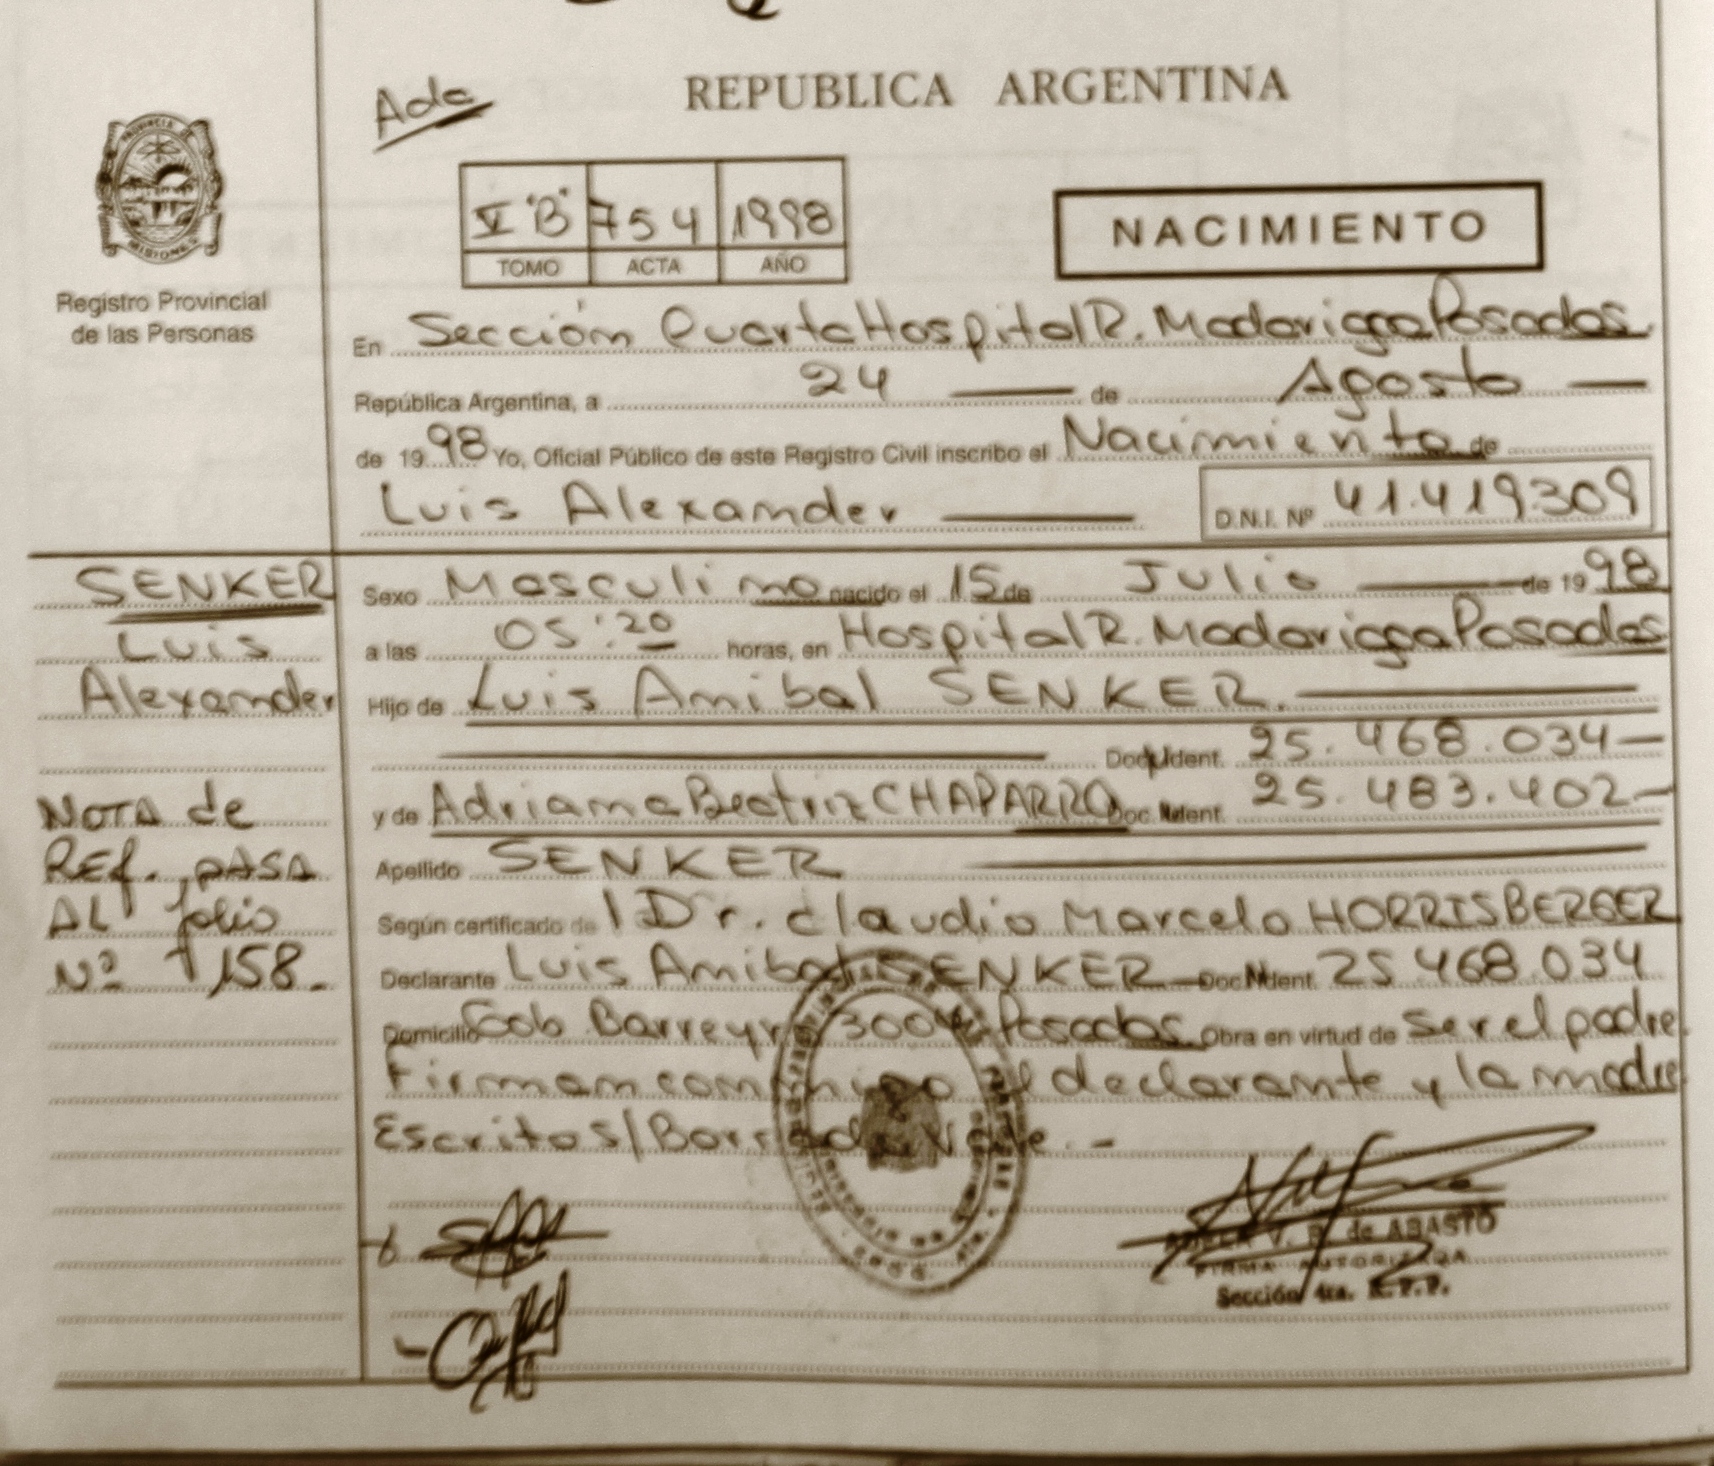 REPUBLICA ARGENTINA
PROVINCIA DE
MISIONES
Registro Provincial
de las Personas
V "B" 754 1998
TOMO ACTA AÑO
NACIMIENTO
En Sección Cuarta Hospital R. Madariaga Posadas
República Argentina, a 24 de Agosto
de 1998 Yo, Oficial Público de este Registro Civil inscribo el Nacimiento de
Luis Alexander D.N.I. Nº 41.419.309
SENKER
Luis
Alexander
NOTA de
Ref. pASA
AL folio
Nº 158.
Sexo Masculino nacido el 15 de Julio de 1998
a las 05:20 horas, en Hospital R. Madariaga Posadas
Hijo de Luis Anibal SENKER.
Doc. Ident. 25.468.034
y de Adriana Beatriz CHAPARRO Doc. Ident. 25.483.402
Apellido SENKER
Según certificado del Dr. Claudio Marcelo HORRISBERGER
Declarante Luis Anibal SENKER Doc. Ident. 25468.034
Domicilio Gob. Barreyro 3004 Posadas Obra en virtud de ser el padre
Firman conmigo el declarante y la madre
Escritos/Borrado Vale.-
V. B. de ABASTO
FIRMA AUTORIZADA
Sección 4ta. R.P.P.